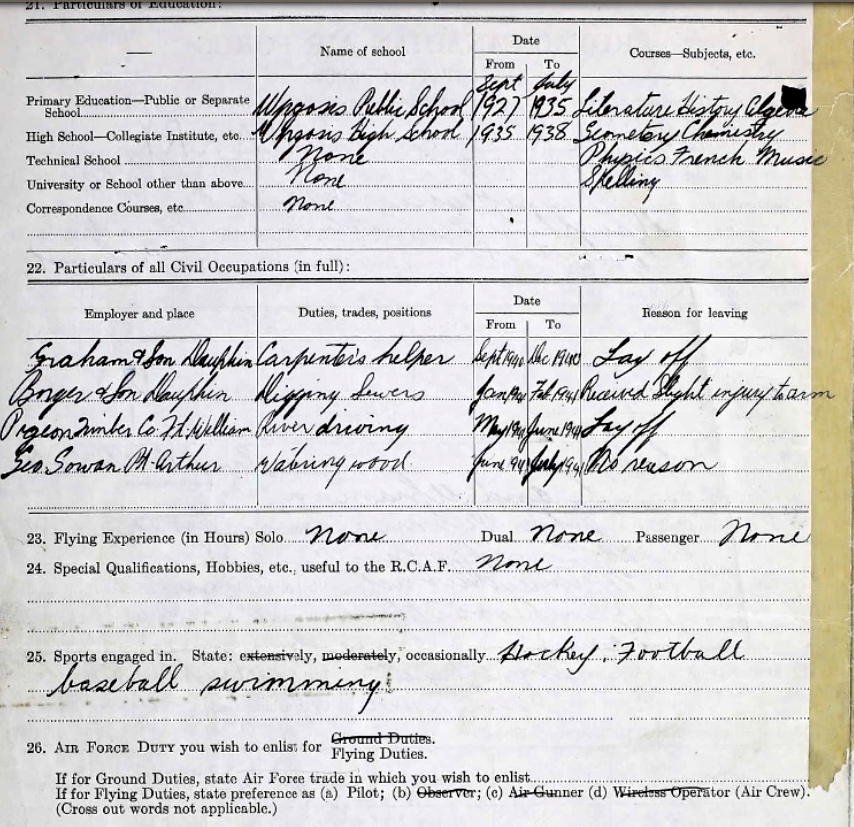 21. Particulars of Education:
Name of school Date Courses—Subjects, etc.
From To
Sept July
Primary Education—Public or Separate School Wpgosis Public School 1927 1935 Literature History Algebra
High School—Collegiate Institute, etc. Wpgosis High School 1935 1938 Geometry Chemistry
Technical School None Physics French Music
University or School other than above None Spelling
Correspondence Courses, etc. None
22. Particulars of all Civil Occupations (in full):
Employer and place Duties, trades, positions Date Reason for leaving
From To
Graham & Son Dauphin Carpenter's helper Sept 1940 Dec 1940 Lay off
Borger & Son Dauphin Digging Sewers Jan 1941 Feb 1941 Received slight injury to arm
Pigeon Timber Co. Ft. William River driving May 1941 June 1941 Lay off
Geo. Sowan Pt. Arthur wood June 1941 July 1941 No reason
23. Flying Experience (in Hours) Solo None Dual None Passenger None
24. Special Qualifications, Hobbies, etc., useful to the R.C.A.F. None
25. Sports engaged in. State: extensively, moderately, occasionally Hockey, Football
baseball swimming
26. AIR FORCE DUTY you wish to enlist for Ground Duties.
Flying Duties.
If for Ground Duties, state Air Force trade in which you wish to enlist
If for Flying Duties, state preference as (a) Pilot; (b) Observer; (c) Air Gunner (d) Wireless Operator (Air Crew).
(Cross out words not applicable.)